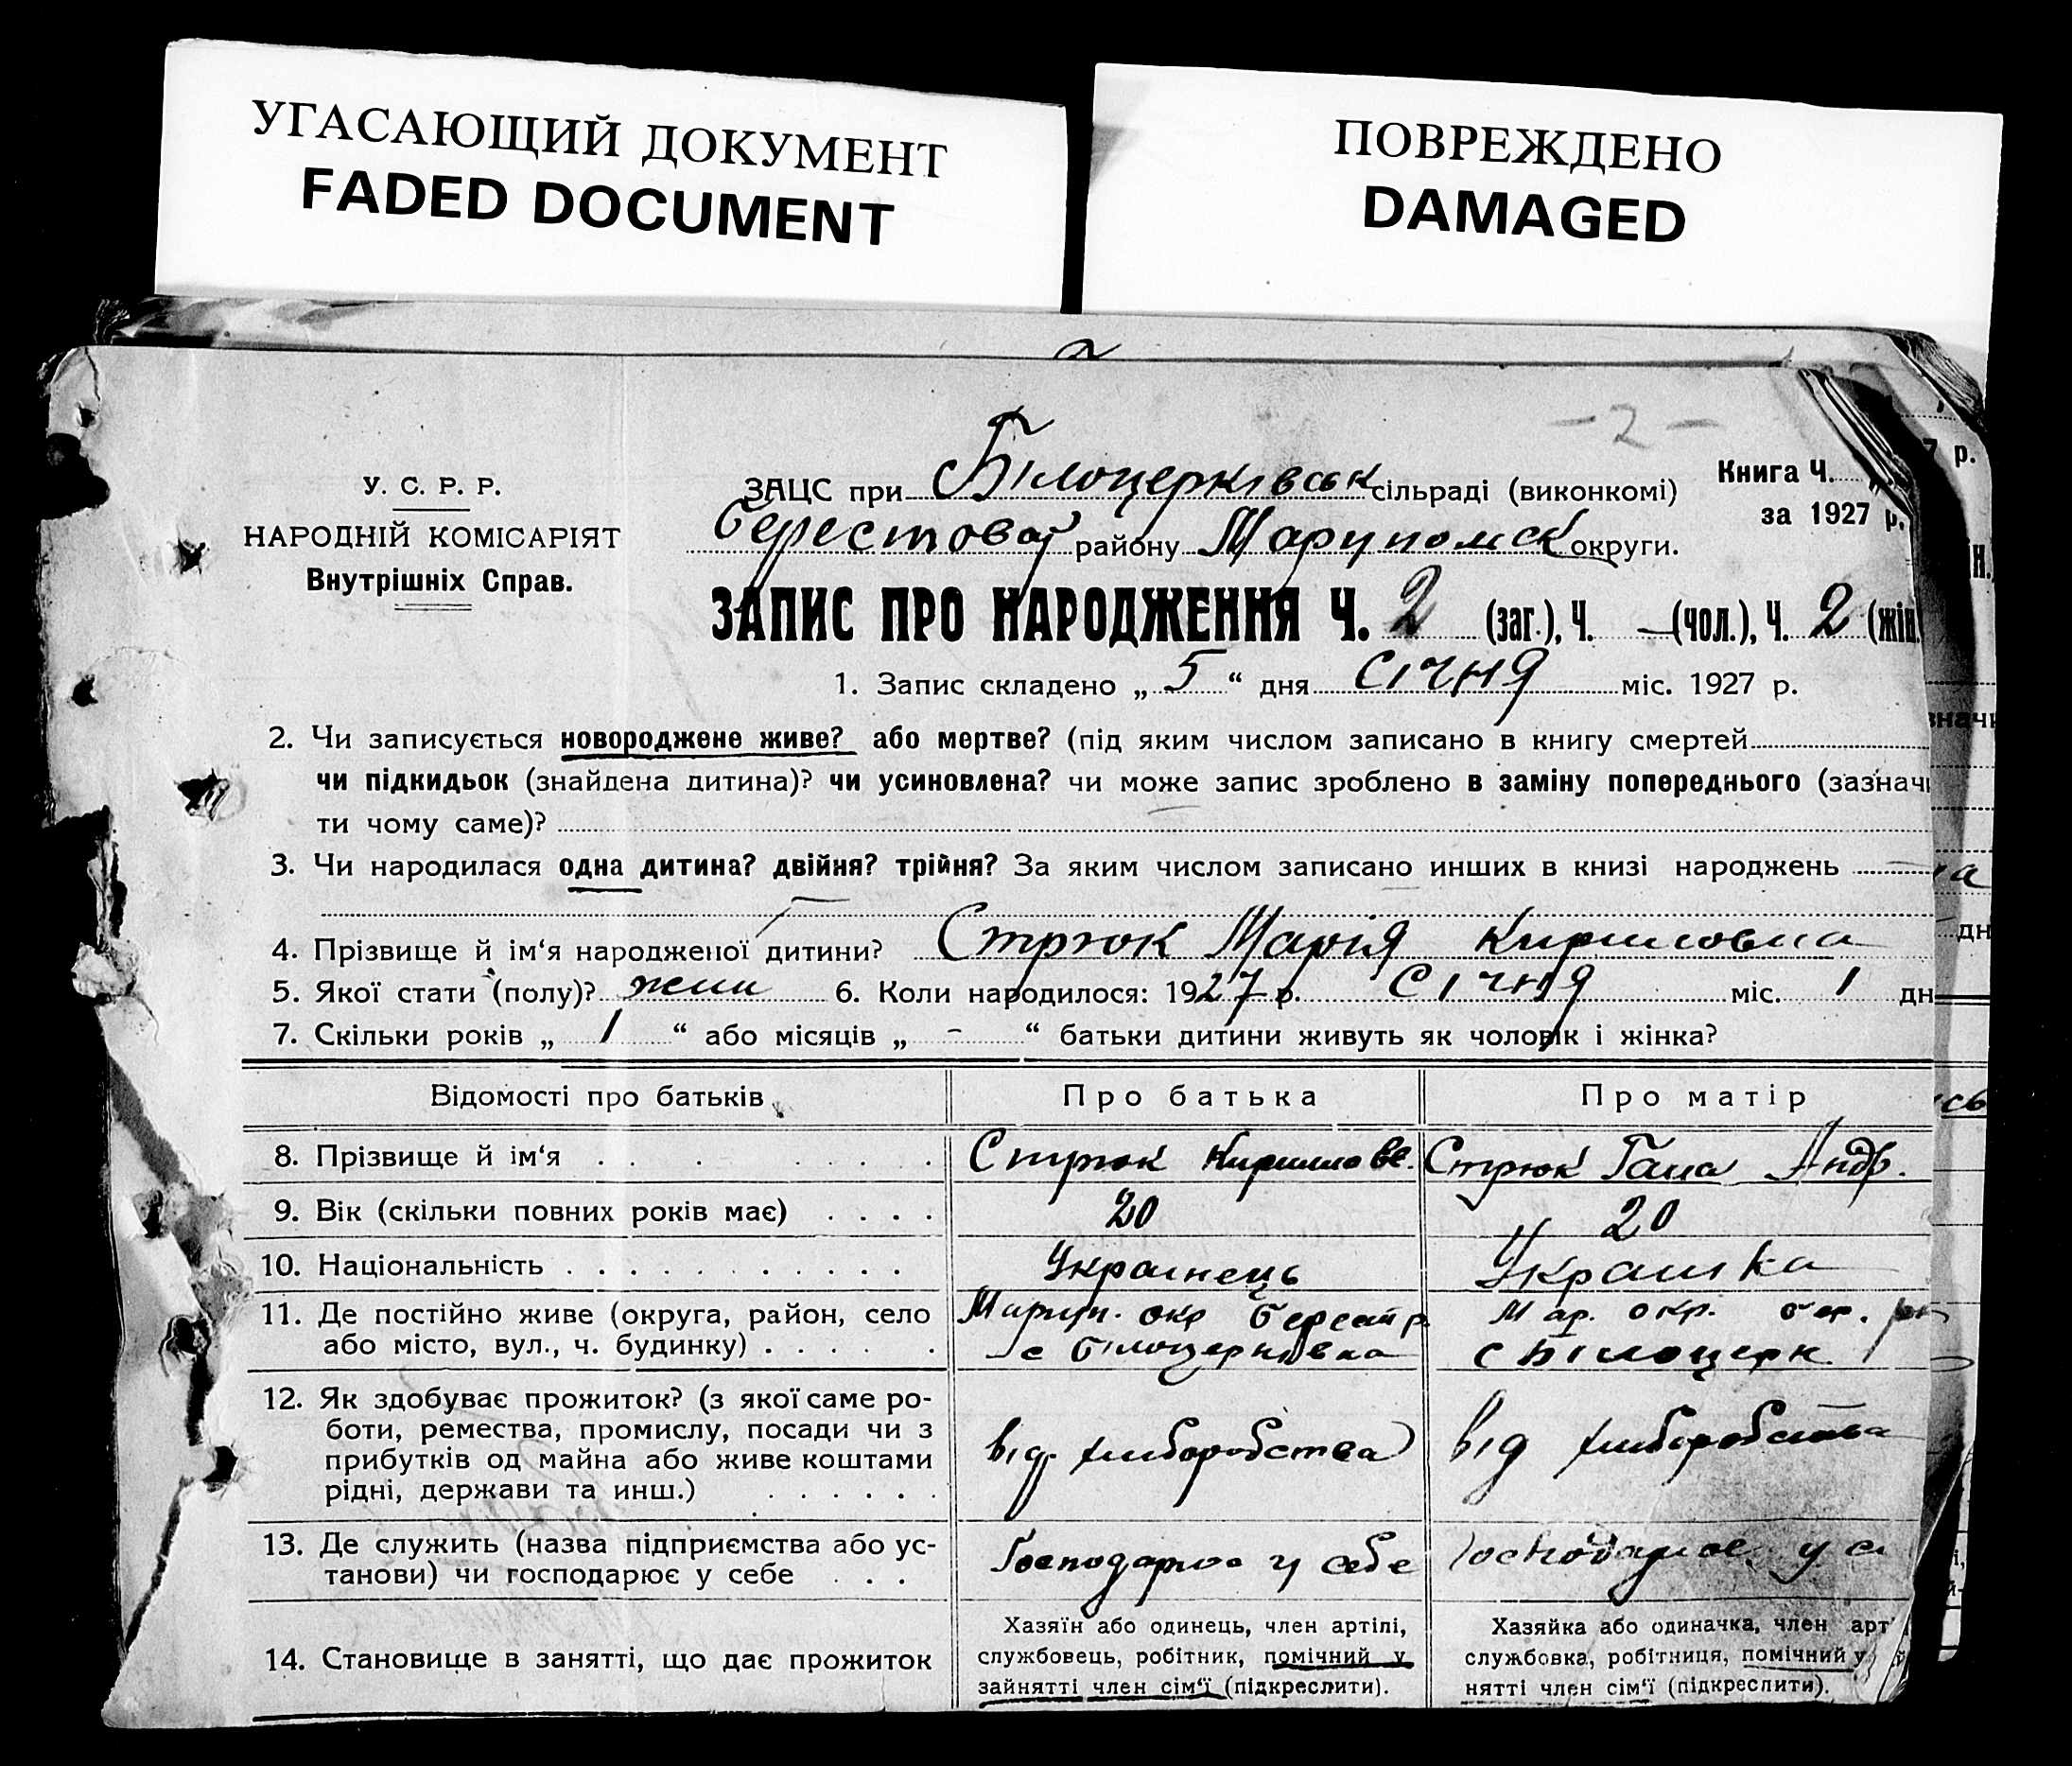 УГАСАЮЩИЙ ДОКУМЕНТ
FADED DOCUMENT
ПОВРЕЖДЕНО
DAMAGED
- 2 -
У. С. Р. Р.
НАРОДНІЙ КОМІСАРІЯТ
Внутрішніх Справ.
ЗАЦС при Білоцерківськ сільраді (виконкомі)
Книга Ч.
за 1927 р.
Берестовой району Марупольск округи.
ЗАПИС ПРО НАРОДЖЕННЯ Ч. 2 (заг.), Ч. — (чол.), Ч. 2 (жін.
1. Запис складено „ 5 “ дня Січня міс. 1927 р.
2. Чи записується новороджене живе? або мертве? (під яким числом записано в книгу смертей
чи підкидьок (знайдена дитина)? чи усиновлена? чи може запис зроблено в заміну попереднього (зазначи
ти чому саме)?
3. Чи народилася одна дитина? двійня? трійня? За яким числом записано инших в книзі народжень
4. Прізвище й ім‘я народженої дитини? Стрюк Марія Кириловна
5. Якої стати (полу)? жин 6. Коли народилося: 1927 р. Січня міс. 1 дн
7. Скільки років „ 1 “ або місяців „ - “ батьки дитини живуть як чоловік і жінка?
Відомості про батьків Про батька Про матір
8. Прізвище й ім‘я Стрюк Кирилло Ве. Стрюк Гана Андр.
9. Вік (скільки повних років має) 20 20
10. Національність Українець Украінка
11. Де постійно живе (округа, район, село Маріуп. окр Берест р. Мар. окр. Бер. рн
або місто, вул., ч. будинку) с Білоцерківка с Білоцерк.
12. Як здобуває прожиток? (з якої саме ро-
боти, ремества, промислу, посади чи з від хліборобства від хліборобства
прибутків од майна або живе коштами
рідні, держави та инш.)
13. Де служить (назва підприємства або ус- Господарює у себе Господарює у се
танови) чи господарює у себе
14. Становище в занятті, що дає прожиток
Хазяїн або одинець, член артілі,
службовець, робітник, помічний у
зайнятті член сім‘ї (підкреслити).
Хазяйка або одиначка, член арт
службовка, робітниця, помічний у
нятті член сім‘ї (підкреслити).